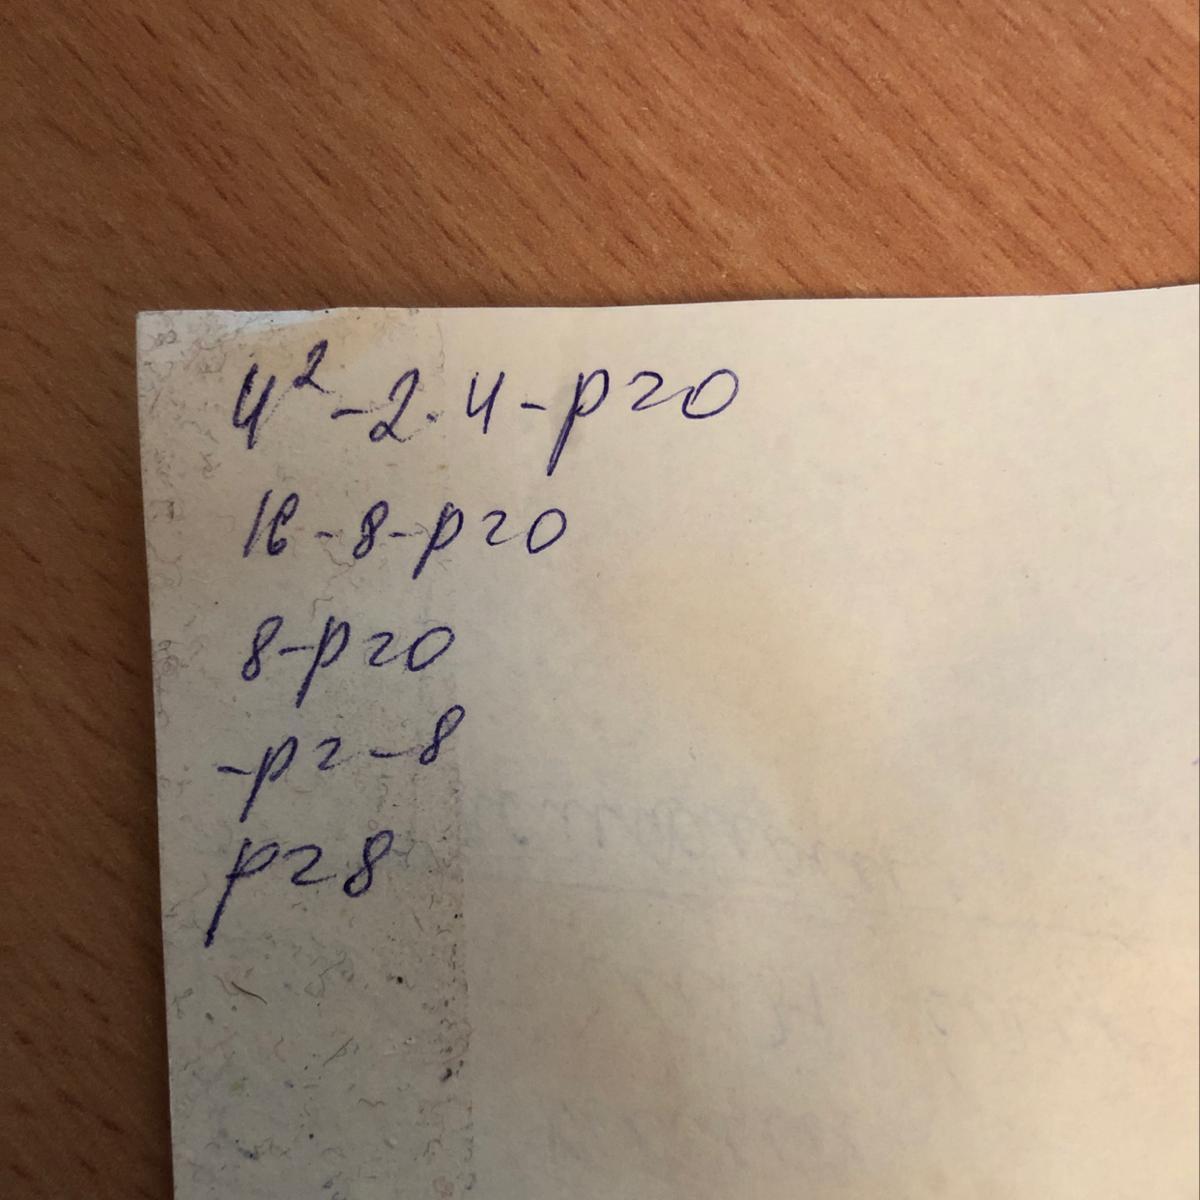 4² - 2 · 4 - p = 0
16 - 8 - p = 0
8 - p = 0
-p = -8
p = 8